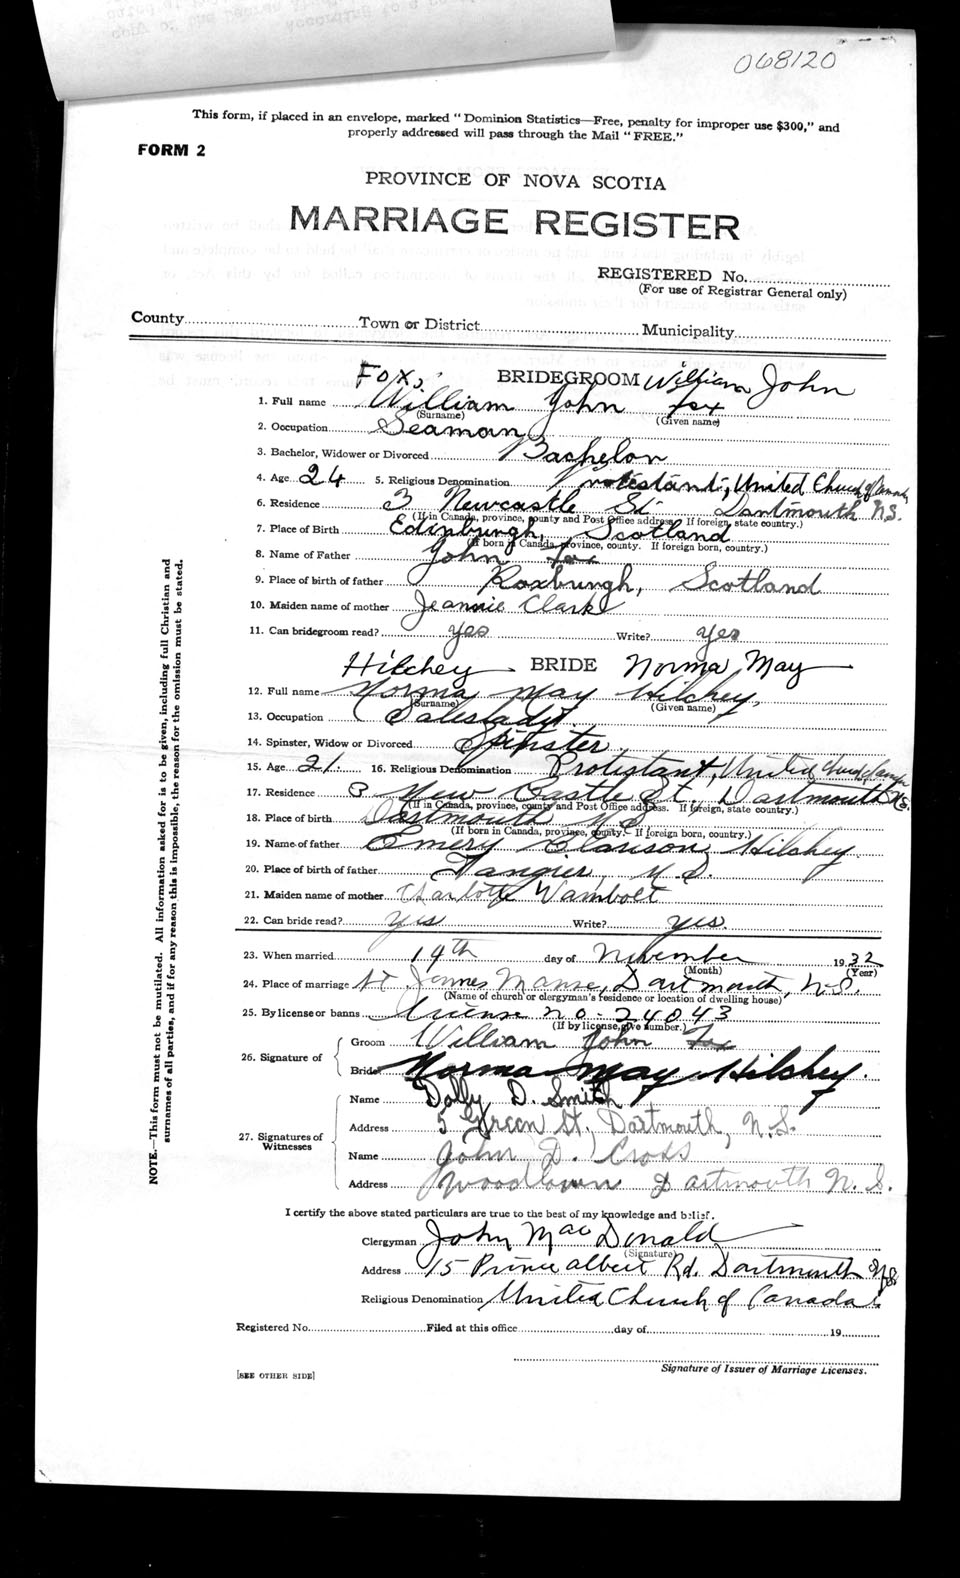 068120
This form, if placed in an envelope, marked "Dominion Statistics—Free, penalty for improper use $300," and
properly addressed will pass through the Mail "FREE."
FORM 2
PROVINCE OF NOVA SCOTIA
MARRIAGE REGISTER
REGISTERED No.
(For use of Registrar General only)
County Town or District Municipality
Fox, BRIDEGROOM William John
1. Full name William John Fox
(Surname) (Given name)
2. Occupation Seaman
3. Bachelor, Widower or Divorced Bachelor
4. Age 24 5. Religious Denomination Protestant, United Church of Canada
6. Residence 3 Newcastle St Dartmouth N.S.
(If in Canada, province, county and Post Office address. If foreign, state country.)
7. Place of Birth Edinburgh, Scotland
(If born in Canada, province, county. If foreign born, country.)
8. Name of Father John Fox
9. Place of birth of father Roxburgh, Scotland
10. Maiden name of mother Jeannie Clark
11. Can bridegroom read? yes Write? yes
Hilchey BRIDE Norma May
12. Full name Norma May Hilchey
(Surname) (Given name)
13. Occupation Saleslady
14. Spinster, Widow or Divorced Spinster
15. Age 21 16. Religious Denomination Protistant, United Church of
17. Residence 3 New Castle St, Dartmouth N.S.
(If in Canada, province, county and Post Office address. If foreign, state country.)
18. Place of birth Dartmouth N.S.
(If born in Canada, province, county. If foreign born, country.)
19. Name of father Emery Clarison Hilchey
20. Place of birth of father Tangier, N.S.
21. Maiden name of mother Charlotte Wambolt
22. Can bride read? yes Write? yes.
23. When married 14th day of November 1932
(Month) (Year)
24. Place of marriage St James Manse, Dartmouth, N.S.
(Name of church or clergyman's residence or location of dwelling house)
25. By license or banns License no - 24043
(If by license, give number.)
26. Signature of
Groom William John Fox
Bride Norma May Hilchey.
27. Signatures of Witnesses
Name Dolly D. Smith
Address 5 Green St, Dartmouth, N.S.
Name John D. Cross
Address Woodlawn Dartmouth N.S.
I certify the above stated particulars are true to the best of my knowledge and belief.
Clergyman John MacDonald
(Signature)
Address 15 Prince Albert Rd. Dartmouth N.S.
Religious Denomination United Church of Canada.
Registered No. Filed at this office day of 19
Signature of Issuer of Marriage Licenses.
[SEE OTHER SIDE]
NOTE.—This form must not be mutilated. All information asked for is to be given, including full Christian and
surnames of all parties, and if for any reason this is impossible, the reason for the omission must be stated.